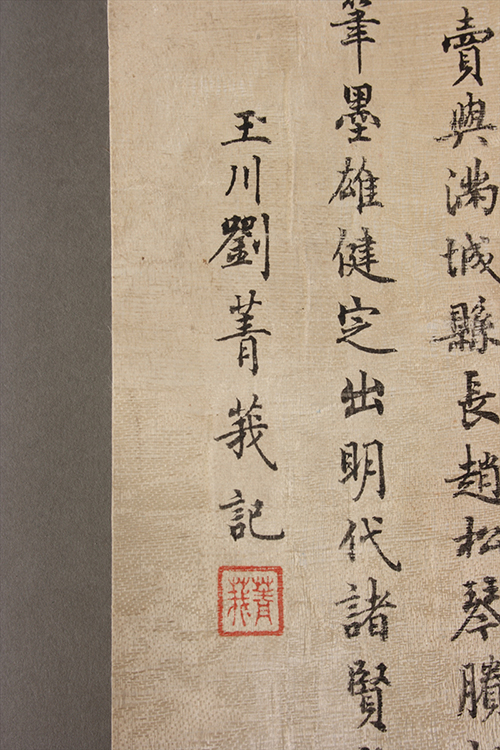 賣與滿城縣長趙松琴賸
筆墨雄健定出明代諸賢
玉川劉菁莪記
菁莪